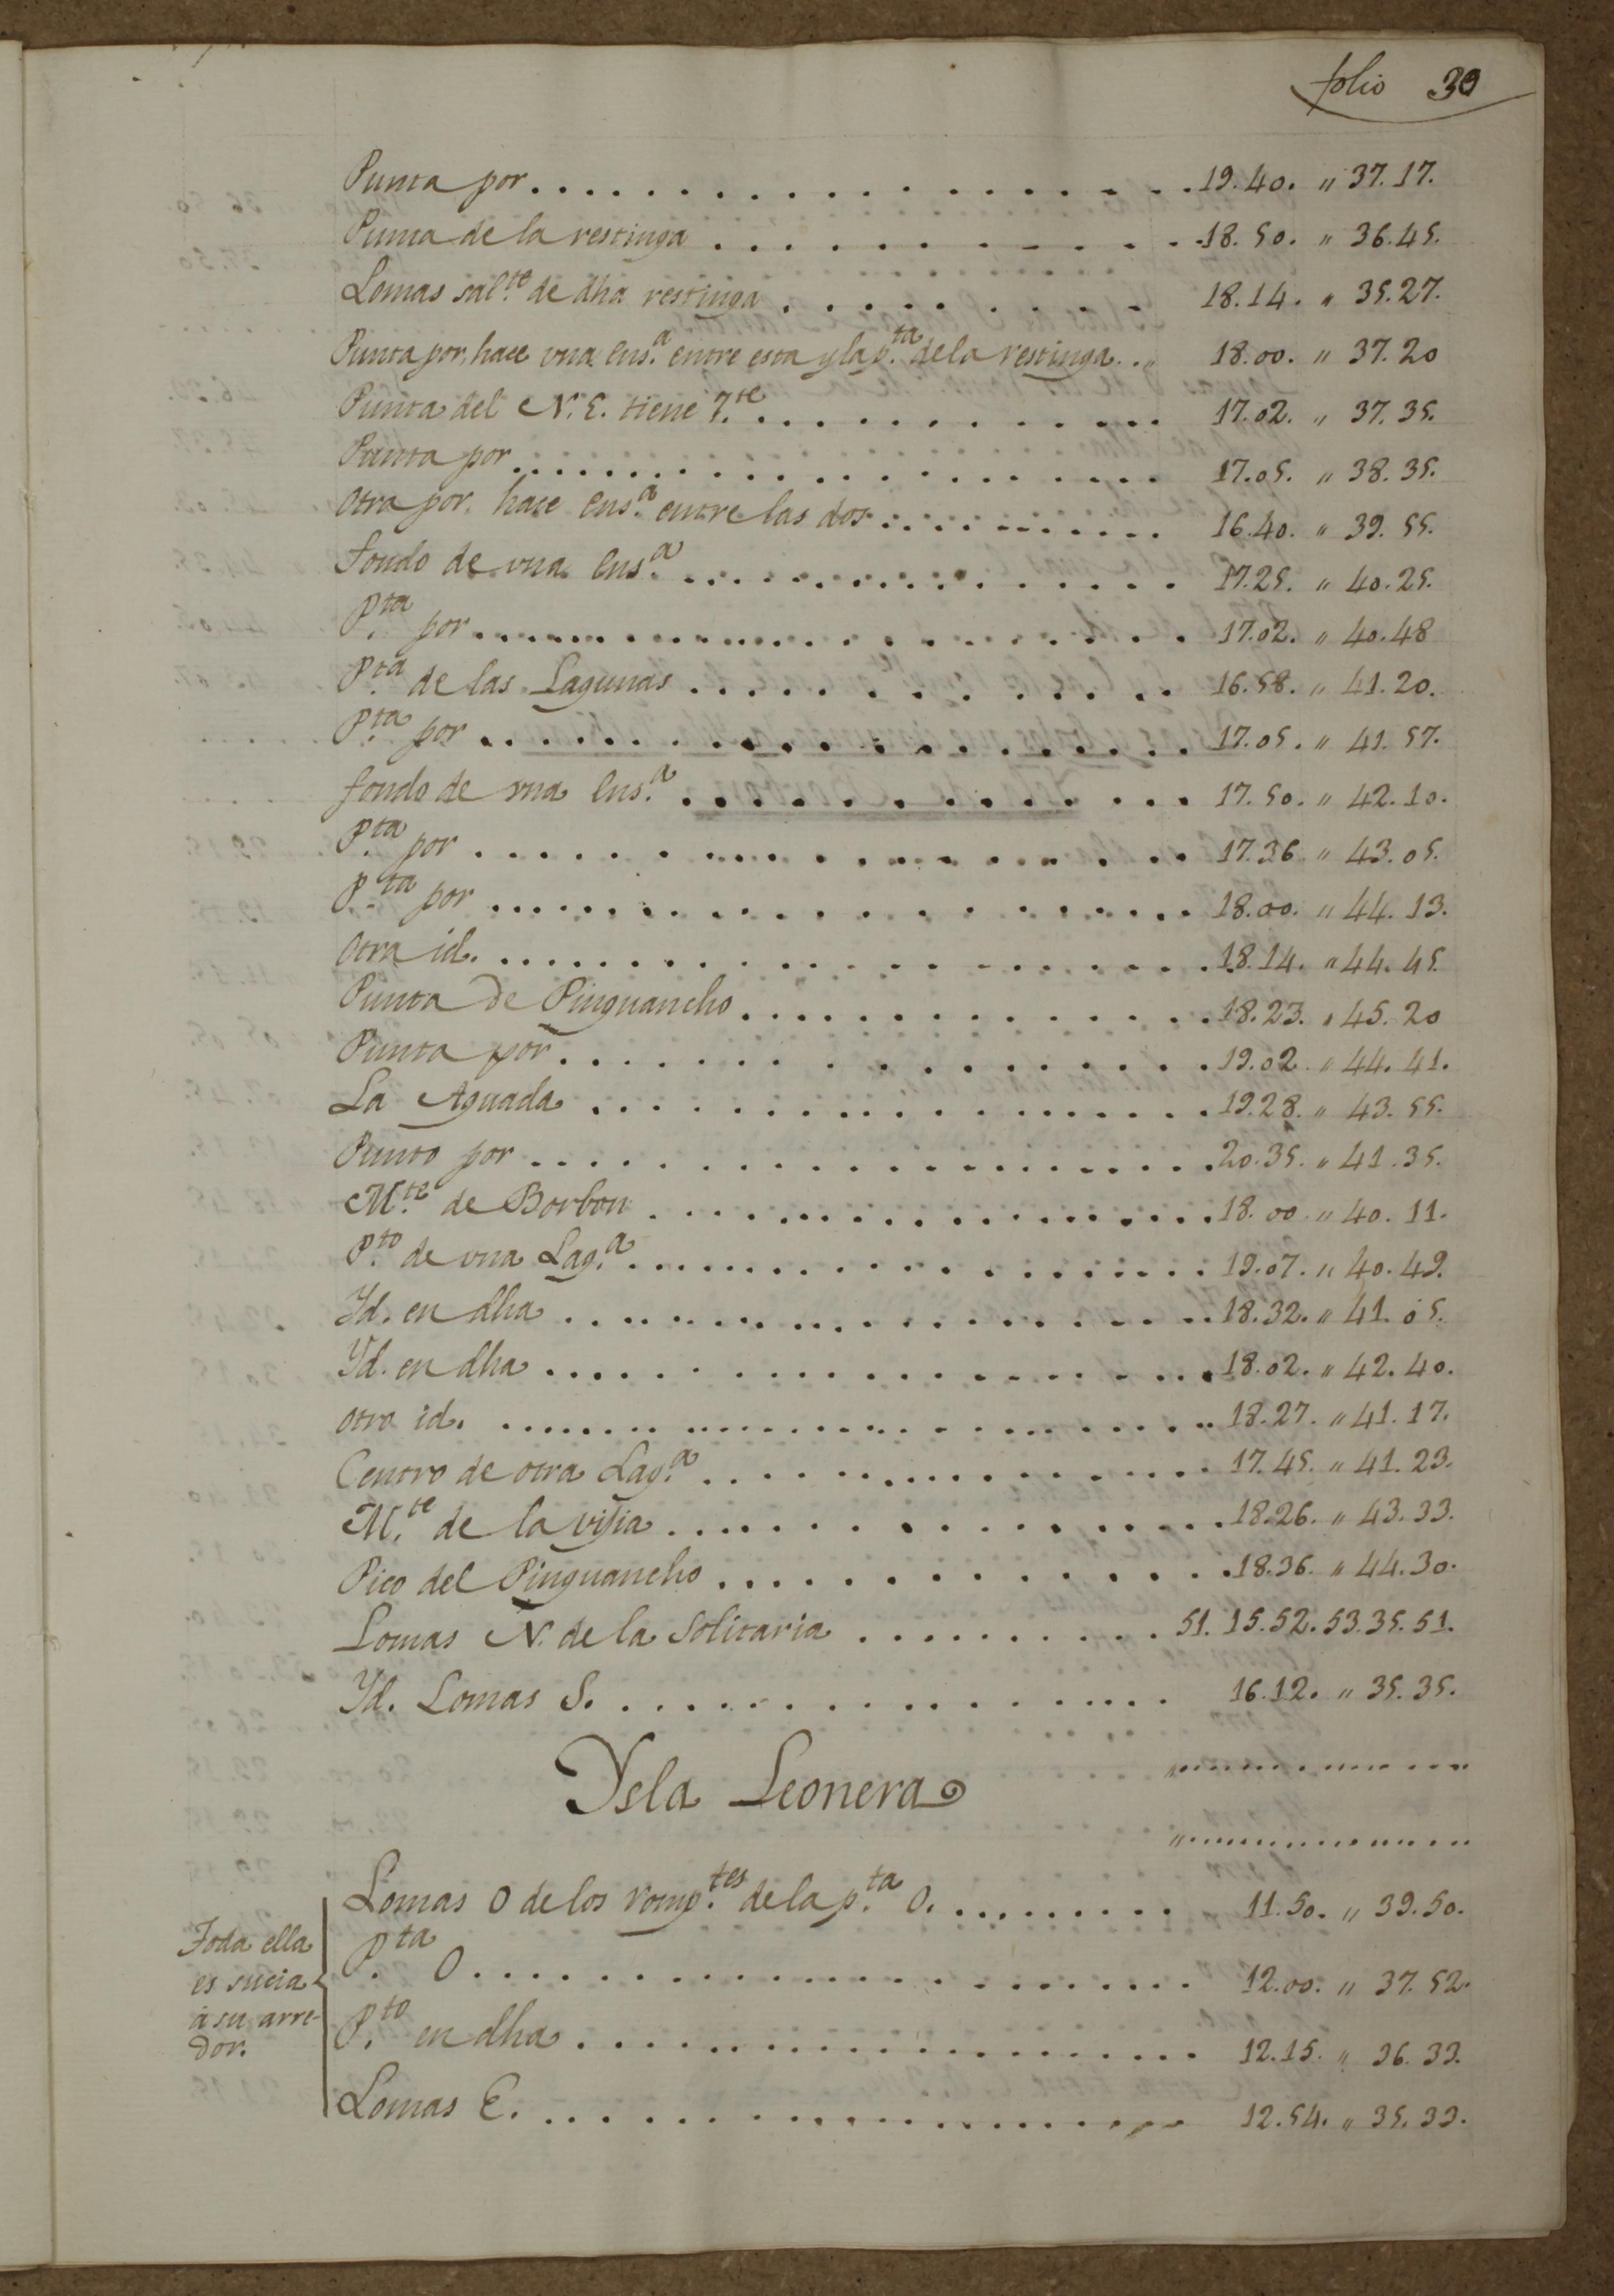 folio 30
Punta por. . . . . . . . . . . . . . . . . . . 19. 40. " 37. 17.
Punta de la restinga . . . . . . . . . . . . 18. 50. " 36. 45.
Lo mas sal.te de dha restinga . . . . . . . . . 18. 14. " 35. 27.
Punta por, hace vna ens.a entre esta y la p.ta de la restinga. . " 18. 00. " 37. 20
Punta del N. E. tiene 7.te . . . . . . . . . . . . 17. 02. " 37. 35.
Punta por. . . . . . . . . . . . . . . . . . . 17. 05. " 38. 35.
Otra por. hace ens.a entre las dos. . . . . . . . . . . 16. 40. " 39. 55.
fondo de vna ens.a . . . . . . . . . . . . . . . 17. 25. " 40. 25.
P.ta por. . . . . . . . . . . . . . . . . . . . 17. 02. " 40. 48
P.ta de las Lagunas . . . . . . . . . . . . . . 16. 58. " 41. 20.
P.ta por . . . . . . . . . . . . . . . . . . . 17. 05. " 41. 57.
fondo de vna ens.a . . . . . . . . . . . . . . 17. 50. " 42. 10.
P.ta por . . . . . . . . . . . . . . . . . . . 17. 36 " 43. 05.
P.ta por . . . . . . . . . . . . . . . . . . . 18. 00. " 44. 13.
Otra id. . . . . . . . . . . . . . . . . . . . 18. 14. " 44. 45
Punta de Pinguancho . . . . . . . . . . . . . 18. 23. " 45. 20
Punta por. . . . . . . . . . . . . . . . . . . 19. 02. " 44. 41.
La Aguada . . . . . . . . . . . . . . . . . . 19. 28. " 43. 55.
Punto por . . . . . . . . . . . . . . . . . . 20. 35. " 41. 35.
M.te de Borbon . . . . . . . . . . . . . . . . 18. 00. " 40. 11.
P.to de vna Lag.a . . . . . . . . . . . . . . . 19. 07. " 40. 49.
Yd. en dha . . . . . . . . . . . . . . . . . . 18. 32. " 41. 05.
Yd. en dha . . . . . . . . . . . . . . . . . . 18. 02. " 42. 40.
otro id. . . . . . . . . . . . . . . . . . . . 18. 27. " 41. 17.
Centro de otra Lag.a . . . . . . . . . . . . . . 17. 45. " 41. 23.
M.te de la vijia . . . . . . . . . . . . . . . . 18. 26. " 43. 33.
Pico del Pinguancho . . . . . . . . . . . . . . 18. 36. " 44. 30.
Lo mas N. de la Solitaria . . . . . . . . . . 51. 15. 52. 53. 35. 51.
Yd. Lo mas S. . . . . . . . . . . . . . . . . 16. 12. " 35. 35.
Ysla Leonera
Lo mas O de los romp.tes de la p.ta O. . . . . . . . . . 11. 50. " 39. 50.
P.ta O . . . . . . . . . . . . . . . . . . . . 12. 00. " 37. 52.
P.to en dha . . . . . . . . . . . . . . . . . . 12. 15. " 36. 33.
Lo mas E. . . . . . . . . . . . . . . . . . . . 12. 54. " 35. 33.
Toda ella
es sucia
à su arre-
dor.